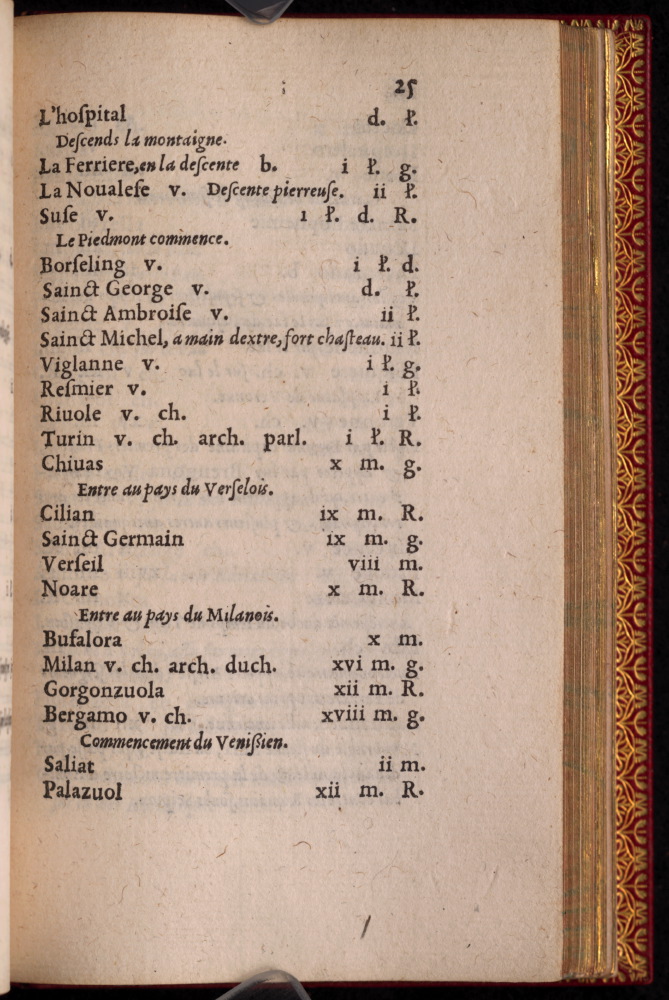 25
L'hoſpital d. ł.
Deſcends la montaigne.
La Ferriere, en la deſcente b. i ł. g.
La Noualeſe v. Deſcente pierreuſe. ii ł.
Suſe v. 1 ł. d. R.
Le Piedmont commence.
Borſeling v. i ł. d.
Sainct George v. d. ł.
Sainct Ambroiſe v. ii ł.
Sainct Michel, a main dextre, fort chaſteau. ii ł.
Viglanne v. i ł. g.
Reſmier v. i ł.
Riuole v. ch. i ł.
Turin v. ch. arch. parl. i ł. R.
Chiuas x m. g.
Entre au pays du Verſelois.
Cilian ix m. R.
Sainct Germain ix m. g.
Verſeil viii m.
Noare x m. R.
Entre au pays du Milanois.
Bufalora x m.
Milan v. ch. arch. duch. xvi m. g.
Gorgonzuola xii m. R.
Bergamo v. ch. xviii m. g.
Commencement du Veniſsien.
Saliat ii m.
Palazuol xii m. R.